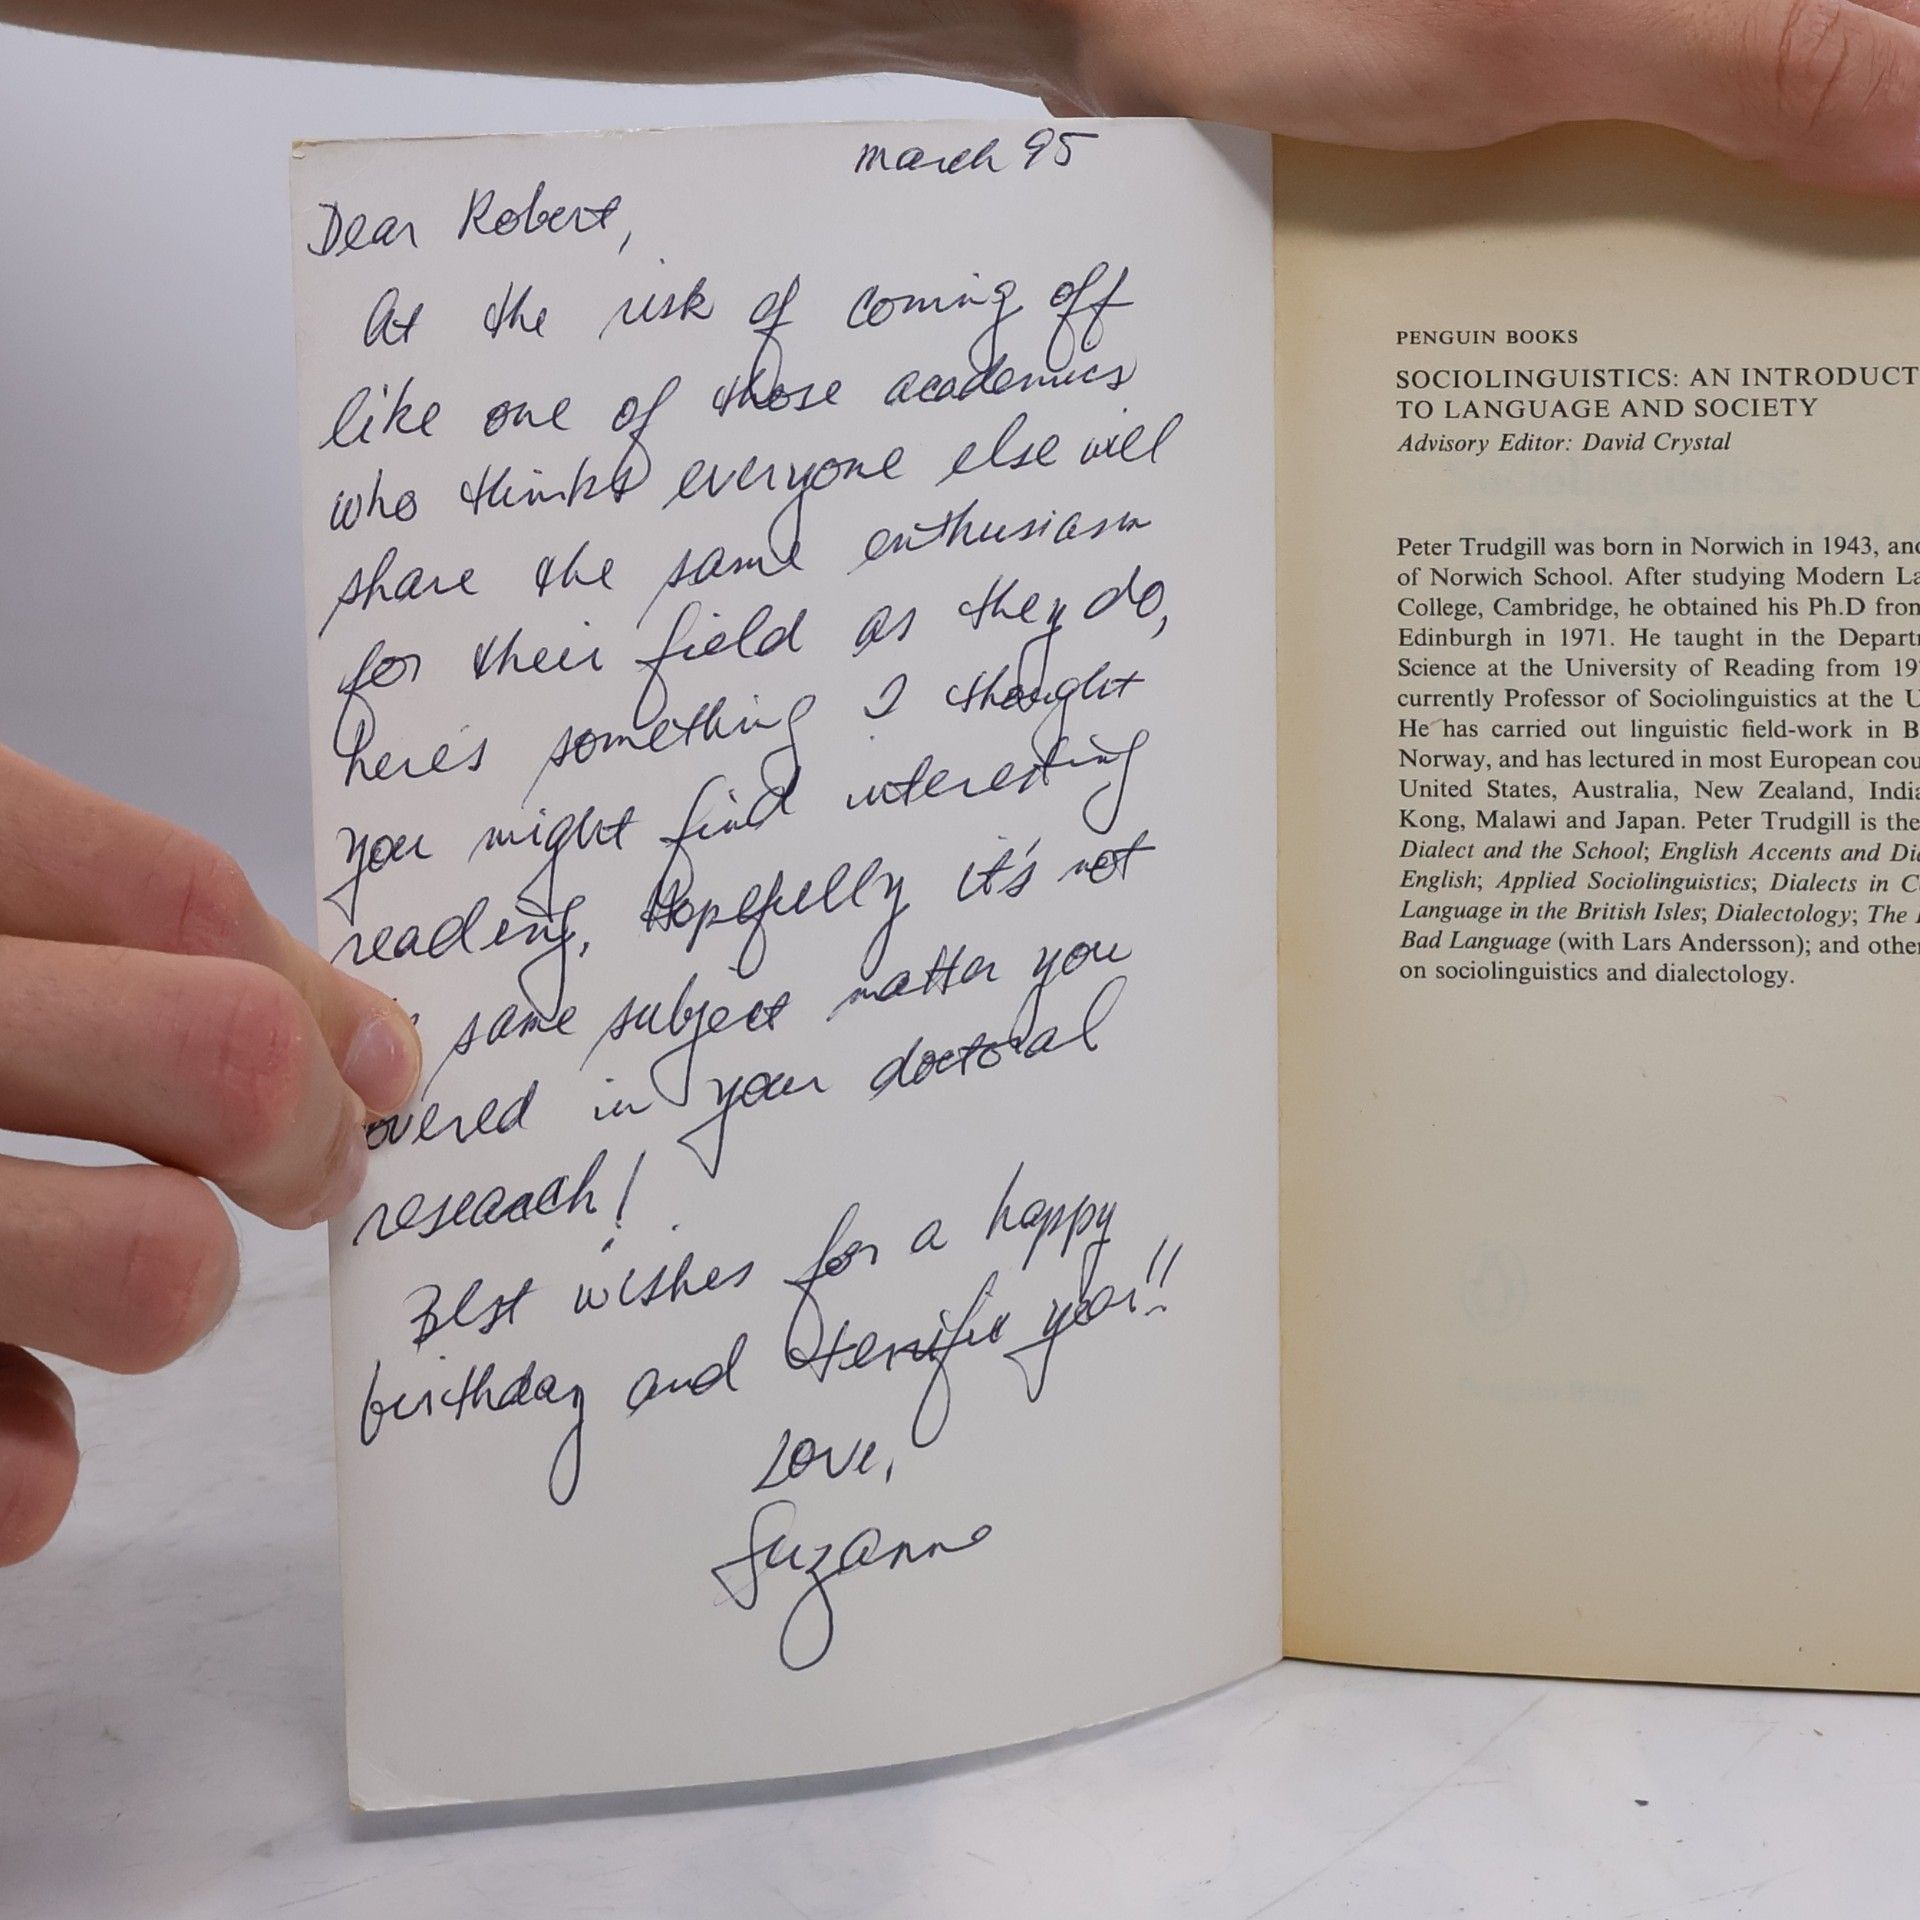 march 95
Dear Robert,
At the risk of coming off
like one of those academics
who thinks everyone else will
share the same enthusiasm
for their field as they do,
here's something I thought
you might find interesting
reading. Hopefully it's not
same subject matter you
overed in your doctoral
research!
Best wishes for a happy
birthday and terrific year!!
Love,
Suzanne
PENGUIN BOOKS
SOCIOLINGUISTICS: AN INTRODUCT
TO LANGUAGE AND SOCIETY
Advisory Editor: David Crystal
Peter Trudgill was born in Norwich in 1943, and
of Norwich School. After studying Modern La
College, Cambridge, he obtained his Ph.D from
Edinburgh in 1971. He taught in the Departm
Science at the University of Reading from 19
currently Professor of Sociolinguistics at the U
He has carried out linguistic field-work in B
Norway, and has lectured in most European cou
United States, Australia, New Zealand, India
Kong, Malawi and Japan. Peter Trudgill is the
Dialect and the School; English Accents and Dia
English; Applied Sociolinguistics; Dialects in C
Language in the British Isles; Dialectology; The
Bad Language (with Lars Andersson); and other
on sociolinguistics and dialectology.